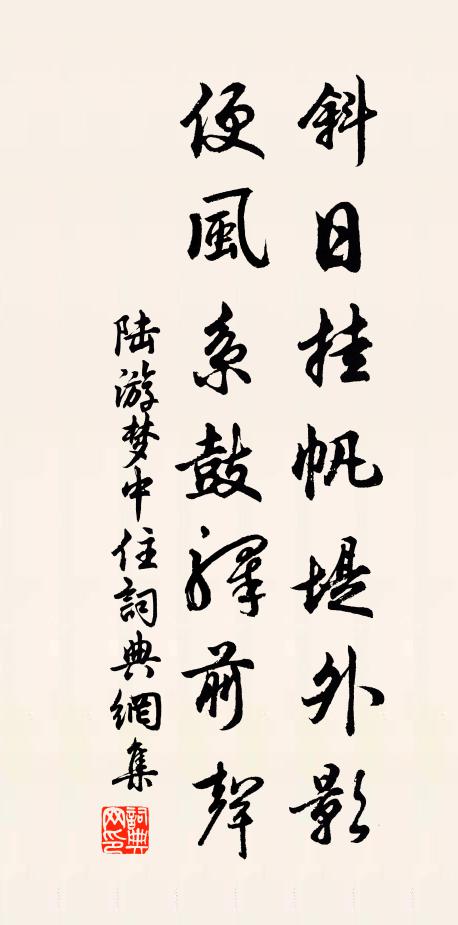 斜日挂帆堤外影
便風系鼓驛前聲
陆游梦中住詞典網集
詞典网印